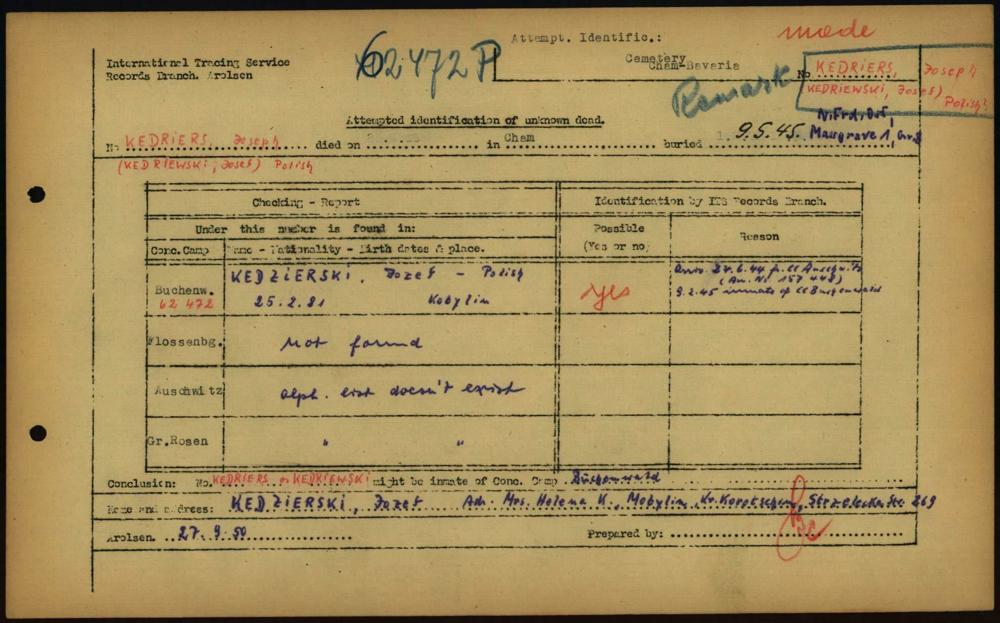 Attempt. Identific.:
made
International Tracing Service
Records Branch. Arolsen
62472 P
Cemetery
Cham-Bavaria
Remark
No KEDRIERS, Joseph
KEDRIEWSKI, Josef) Polish
N. Frdl. Ost,
Massgrave 1,
Attempted identification of unknown dead.
No KEDRIERS, Joseph died on in Cham buried 9.5.45
(KEDRIEWSKI, Josef) Polish
Checking - Report
Identification by ITS Records Branch.
Under this number is found in:
Possible
(Yes or no)
Reason
Conc.Camp
Name - Nationality - Birth dates & place.
Buchenw.
62 472
KEDZIERSKI, Jozef - Polish
25.2.81 Kobylin
yes
27.6.44 CC Auschwitz
9.2.45 inmate of CC Buchenwald
Flossenbg.
Not found
Auschwitz
alph. list doesn't exist
Gr.Rosen
" "
Conclusion: No. KEDRIERS or KEDRIEWSKI might be inmate of Conc. Camp Buchenwald
Name and address: KEDZIERSKI, Jozef Adr. Mrs. Helena K., Mobylin, Kr. Strzelecka Str. 269
Arolsen. 27.9.50
Prepared by: